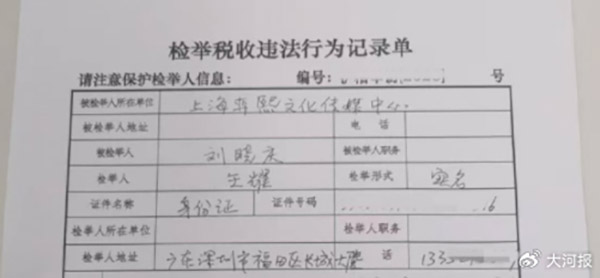 检举税收违法行为记录单
请注意保护检举人信息： 编号：
被检举人所在单位 上海 熙文化传媒中心
被检举人地址 电 话
被检举人 刘晓庆 被检举人职务
检举人 王耀 检举形式 实名
证件名称 身份证 证件号码 6
检举人所在单位 检举人职务
检举人地址 广东深圳市福田区长城大厦 话 133
大河报